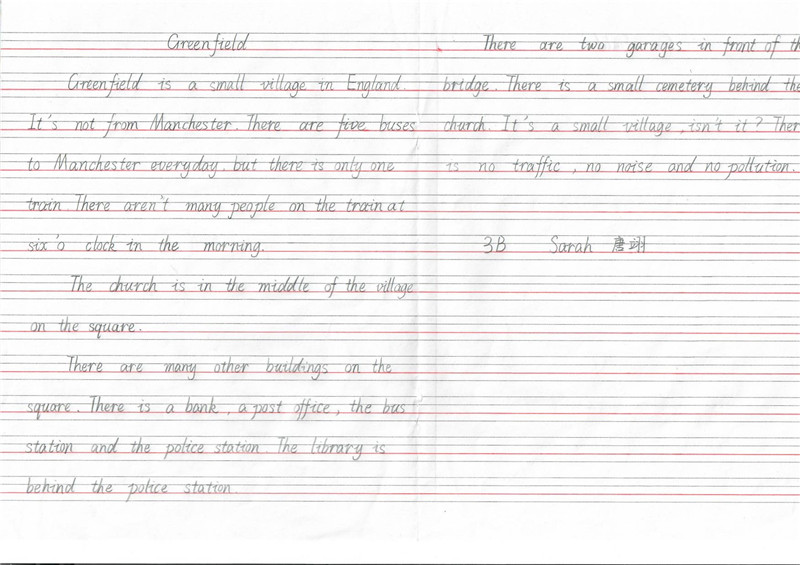 Greenfield
Greenfield is a small village in England.
It's not from Manchester. There are five buses
to Manchester everyday, but there is only one
train. There aren't many people on the train at
six'o clock in the morning.
The church is in the middle of the village
on the square.
There are many other buildings on the
square. There is a bank, a post office, the bus
station and the police station. The library is
behind the police station.
There are two garages in front of th
bridge. There is a small cemetery behind the
church. It's a small village, isn't it? Ther
is no traffic, no noise and no pollution.
3B Sarah 唐翊